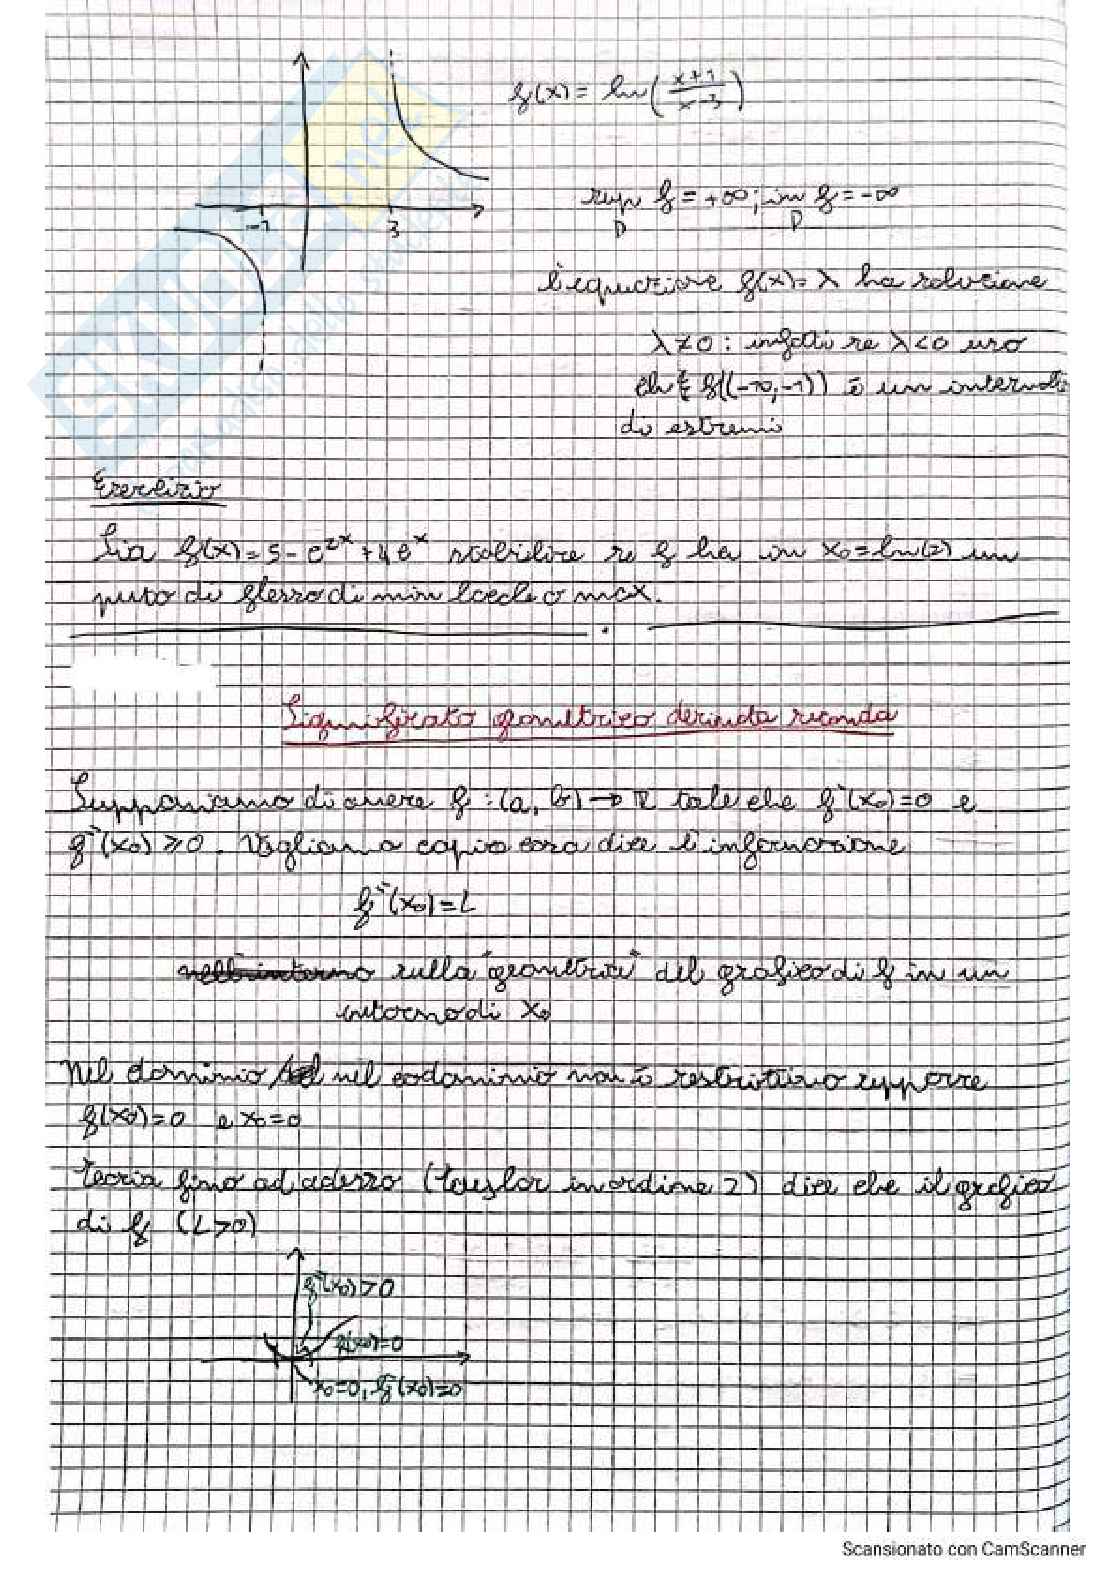 f(x) = ln(x+1/x-3)
sup f = +∞; inf f = -∞
D D
-1 3
l'equazione f(x) = λ ha soluzione
λ≠0 : infatti se λ<0 uso
che f((-∞,-1)) è un intervallo
di estremi
Esercizio
Sia f(x) = 5 - e^2x + 4e^x stabilire se f ha in x₀ = ln(2) un
puto di flesso di min locale o max.
Significato geometrico derivata seconda
Supponiamo di avere f : (a, b) → R tale che f'(x₀)=0 e
f''(x₀) ≥ 0. Vogliamo capire cosa dice l'informazione
f''(x₀) = L
nell'intorno sulla "geometria" del grafico di f in un
intorno di x₀
Nel dominio nel codominio non è restrittivo supporre
f(x₀)=0 e x₀=0
Teoria fino ad adesso (Taylor in ordine 2) dice che il grafico
di f (L>0)
f''(x₀) > 0
f(x₀)=0
x₀=0, f'(x₀)=0
SKUOLA.net
Scansionato con CamScanner